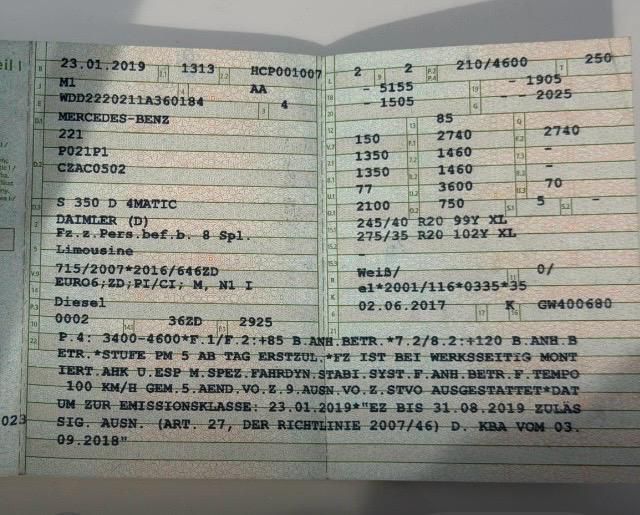 23.01.2019 1313 HCP001007
M1 AA
WDD2220211A360184 4
MERCEDES-BENZ
221
P021P1
CZAC0502
S 350 D 4MATIC
DAIMLER (D)
Fz.z.Pers.bef.b. 8 Spl.
Limousine
715/2007*2016/646ZD
EURO6;ZD;PI/CI; M, N1 I
Diesel
0002 36ZD 2925
2 2 210/4600 250
- 5155 - 1905
- 1505 - 2025
85
150 2740 2740
1350 1460 -
1350 1460 -
77 3600 70
2100 750 5 -
245/40 R20 99Y XL
275/35 R20 102Y XL
-
Weiß/ 0/
e1*2001/116*0335*35
02.06.2017 K GW400680
P.4: 3400-4600*F.1/F.2:+85 B.ANH.BETR.*7.2/8.2:+120 B.ANH.B
ETR.*STUFE PM 5 AB TAG ERSTZUL.*FZ IST BEI WERKSSEITIG MONT
IERT.AHK U.ESP M.SPEZ.FAHRDYN.STABI.SYST.F.ANH.BETR.F.TEMPO
100 KM/H GEM.5.AEND.VO.Z.9.AUSN.VO.Z.STVO AUSGESTATTET*DAT
UM ZUR EMISSIONSKLASSE: 23.01.2019*"EZ BIS 31.08.2019 ZULÄS
SIG. AUSN. (ART. 27, DER RICHTLINIE 2007/46) D. KBA VOM 03.
09.2018"
023